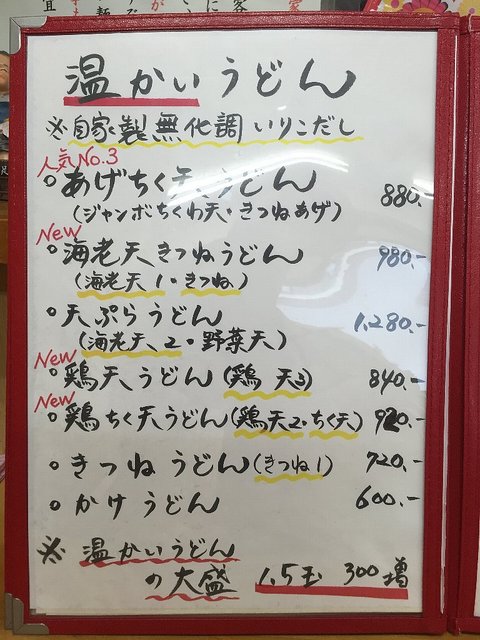 温かいうどん
※自家製無化調いりこだし
人気No.3
○あげちく天うどん 880.-
(ジャンボちくわ天・きつねあげ)
New
○海老天きつねうどん 980.-
(海老天1・きつね1)
○天ぷらうどん 1,280.-
(海老天2・野菜天)
New
○鶏天うどん(鶏天3) 840.-
New
○鶏ちく天うどん(鶏天2・ちく天) 920.-
○きつねうどん(きつね1) 720.-
○かけうどん 600.-
※温かいうどん
の大盛 1.5玉 300増